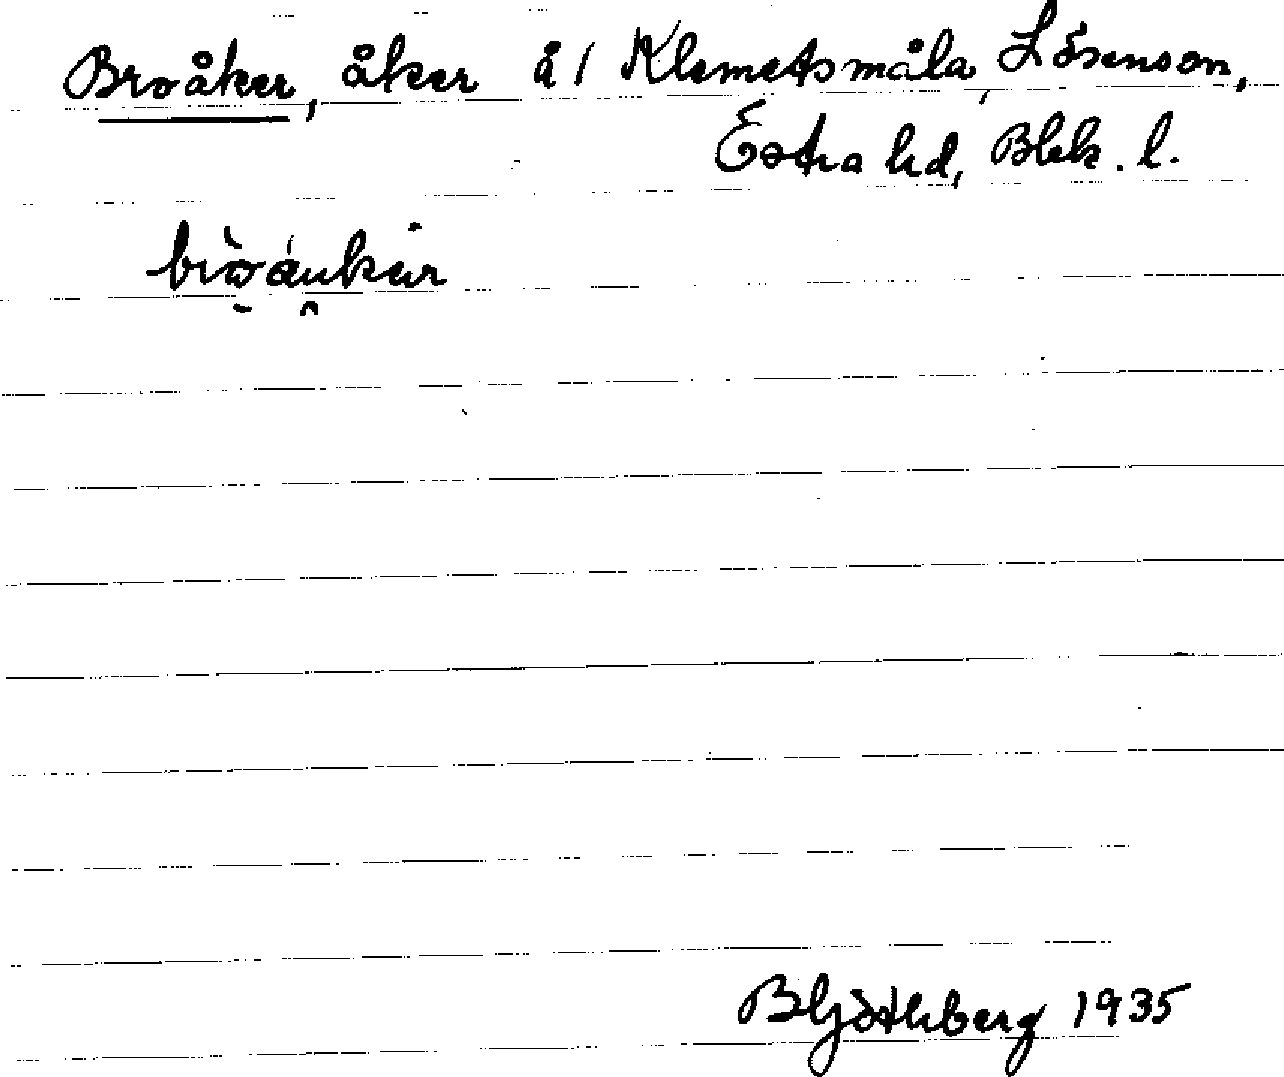 Broåker, åker å 1 Klemetsmåla, Lösenson,
Östra hd, Blek. l.
B Göthberg 1935